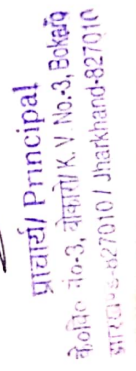 प्राचार्य/ Principal
के०वि० नं०-3, बोकारो/ K. V. No.-3, Bokaro
झारखण्ड-827010 / Jharkhand-827010